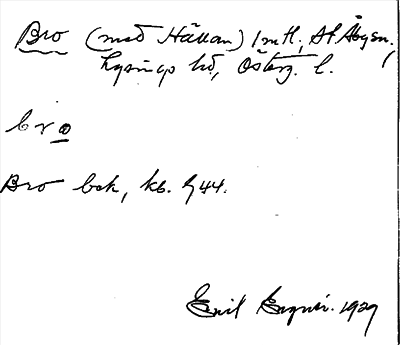 Bro (med Hällan) 1 mtl, St. Åby sn,
Lysings hd, Österg. l.
bro
Bro bok, kb. 1744.
Emil 1929